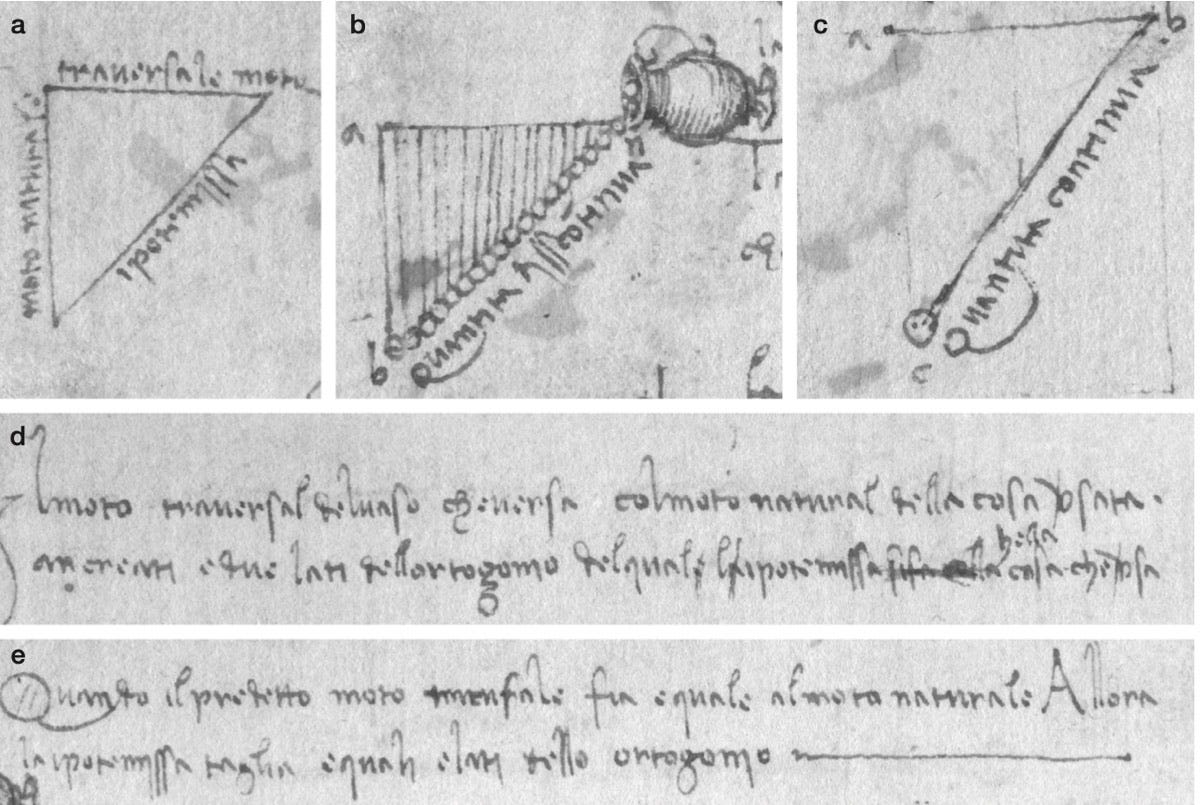 a
traversale moto
moto naturale
ipotenissa
b
a
b
Quantita asscontinua
c
a
b
c
Quantita continua
d
Il moto traversal del vaso che versa col moto natural della cosa versata
an creati e due lati dell ortogonio del quale lipotenissa he lla cosa che versa
e
Quando il predetto moto fia equale al moto naturale Allora
la ipotenissa taglia equali e lati dello ortogonio